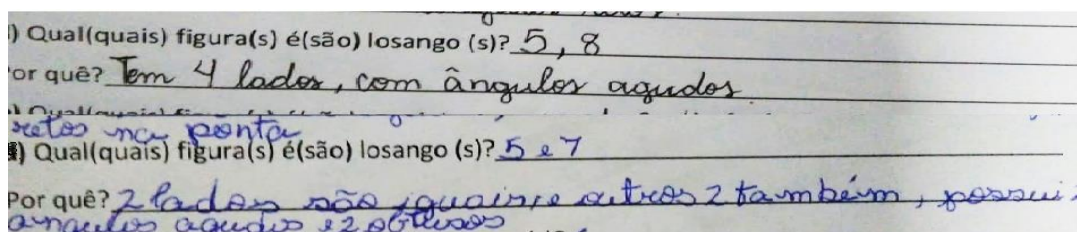 ) Qual(quais) figura(s) é(são) losango (s)? 5, 8
or quê? Tem 4 lados, com ângulos agudos
retos na ponta
) Qual(quais) figura(s) é(são) losango (s)? 5 e 7
Por quê? 2 lados são iguais, e outros 2 também, possui
angulos agudos e 2 obtusos